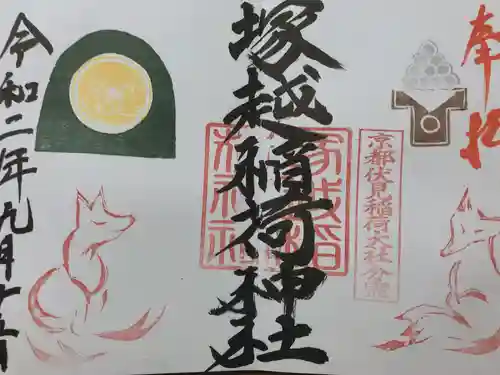 奉拝
京都伏見稲荷大社分霊
塚越稲荷神社
塚越稲
荷神社
令和二年九月十五